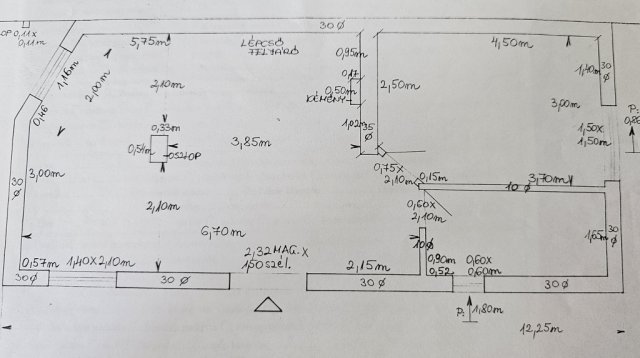 30 Ø
OP 0,11 x
0,11m
5,75m
LÉPCSŐ
FELJÁRÓ
0,95m
4,50m
1,16m
2,00m
2,10m
0,17
0,50m
KÉMÉNY
2,50m
1,40m
30
Ø
3,00m
P:
0,86
0,46
0,33m
0,54m
OSZLOP
3,85m
1,02m
35
Ø
1,50x
1,50m
0,75x
2,10m
0,15m
10 Ø
3,70m
3,00m
30
Ø
2,10m
0,60x
2,10m
6,70m
10Ø
1,65m
30
Ø
2,32 MAG. x
1,50 szél.
0,57m
1,40x2,10m
2,15m
0,90m
0,52
0,60x
0,60m
30 Ø
30 Ø
30 Ø
30 Ø
P:
1,80m
12,25m